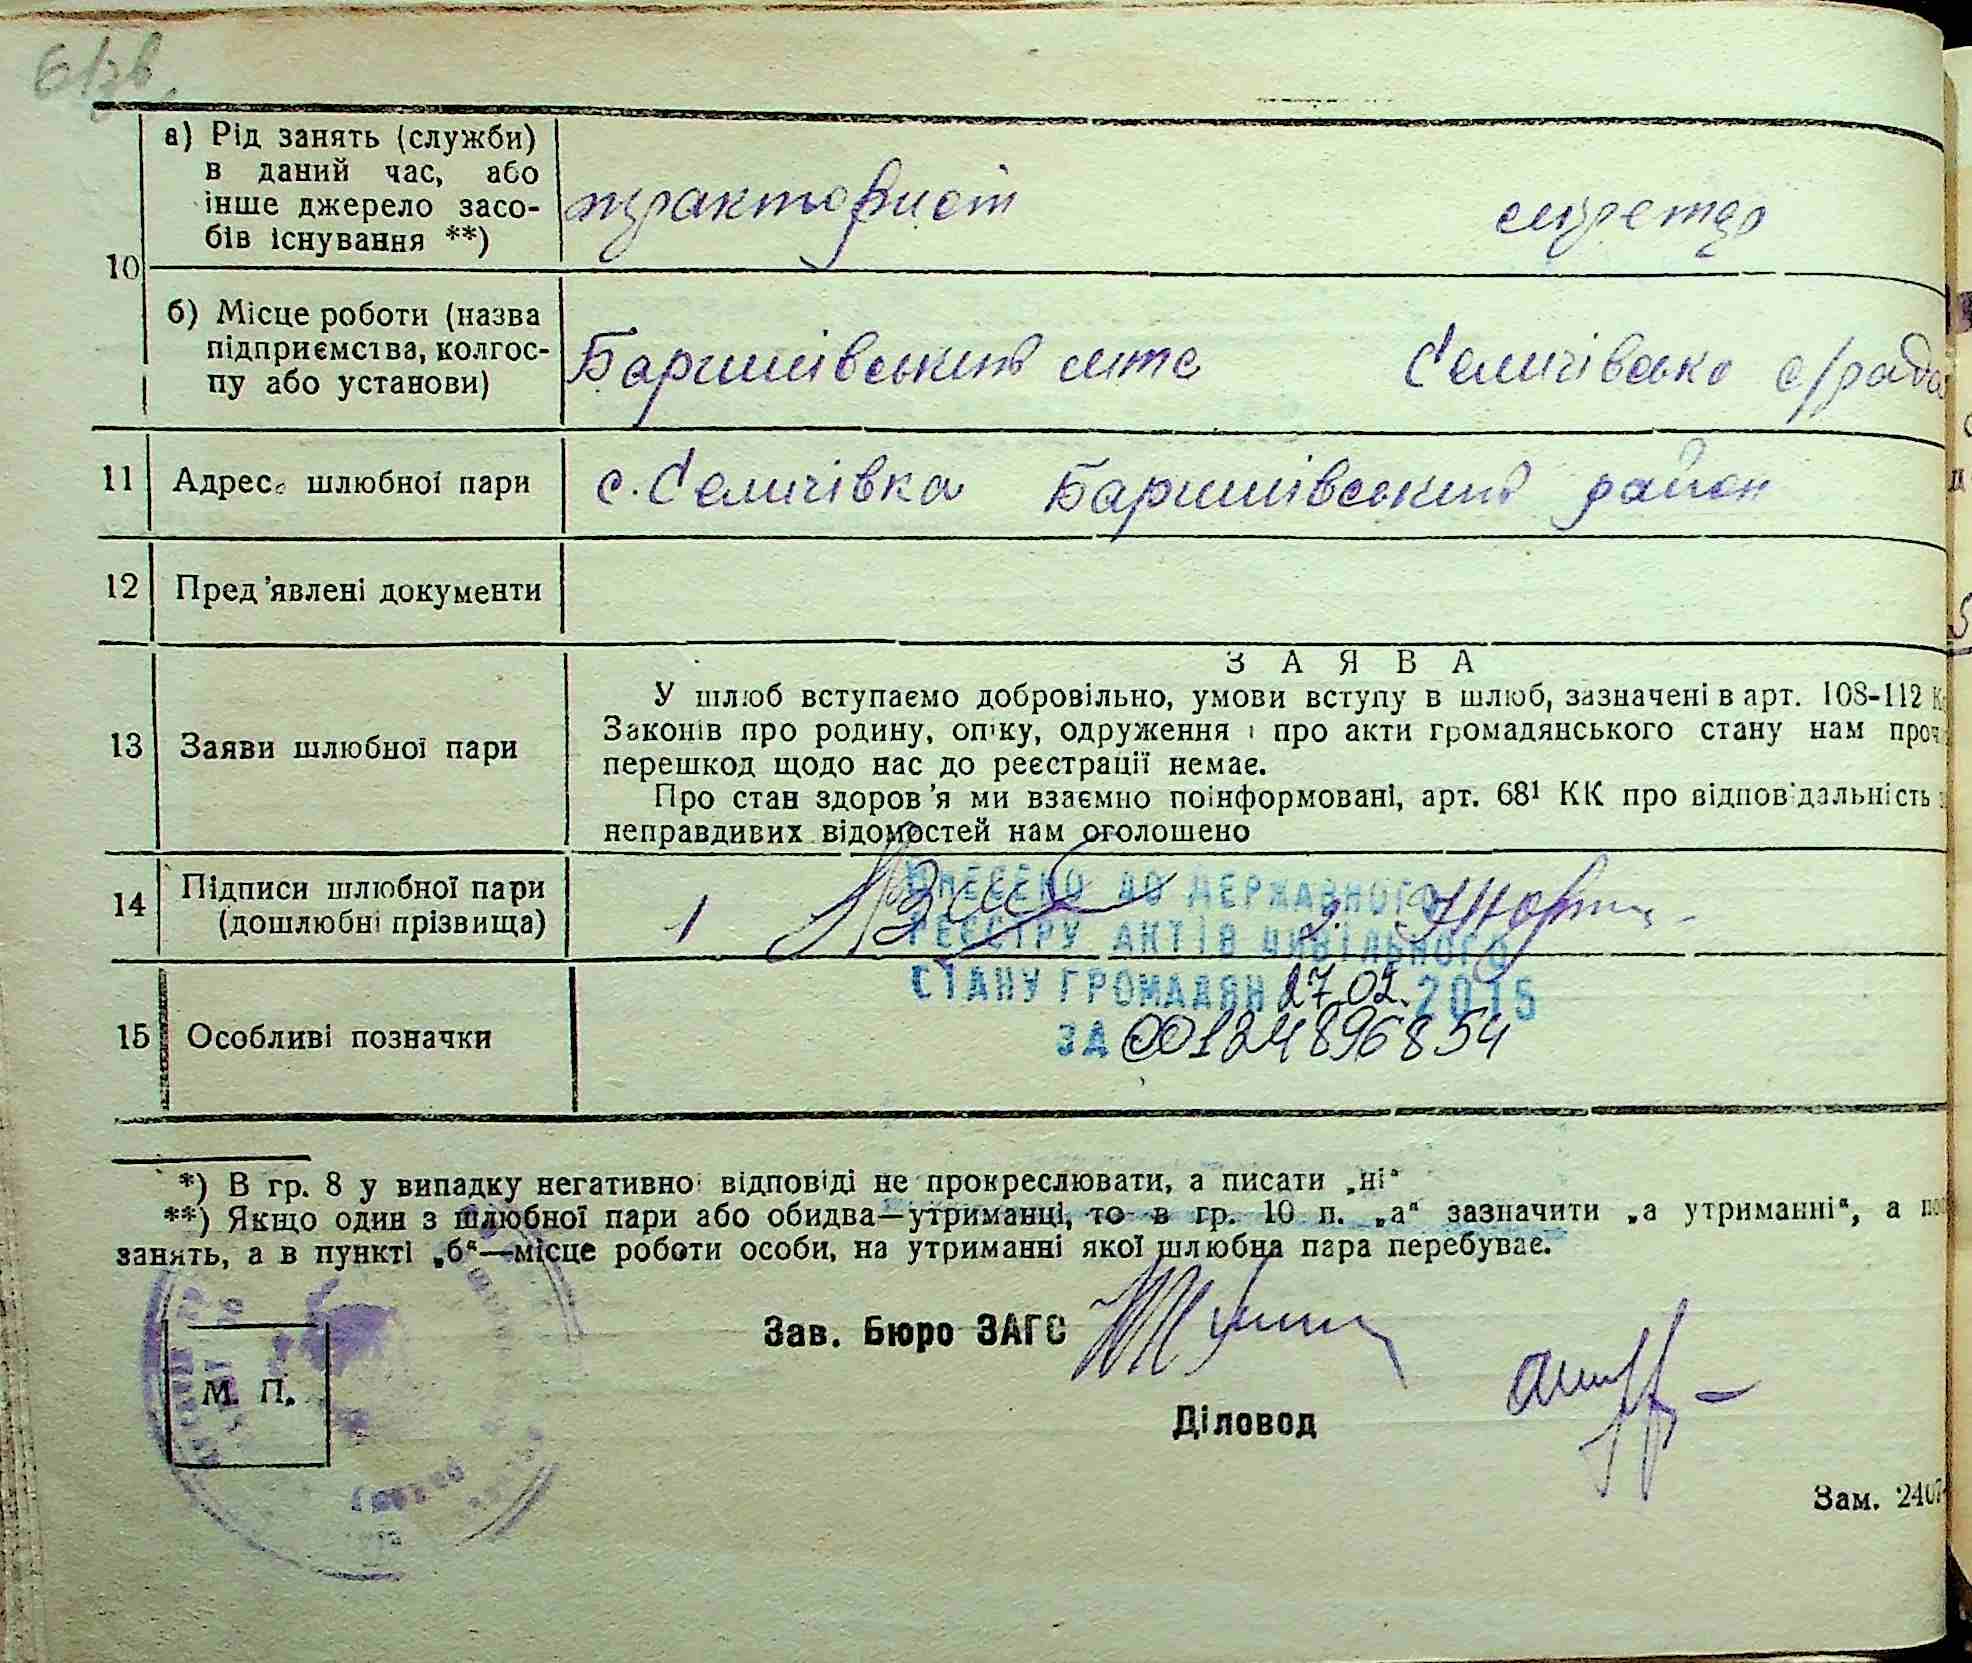 61зв.
10
а) Рід занять (служби)
в даний час, або
інше джерело засо-
бів існування **)
тракторист
секретар
б) Місце роботи (назва
підприємства, колгос-
пу або установи)
Баришівський мтс
Селичівсько с/рада
11 Адреса шлюбної пари
с. Селичівка Баришівський район
12 Пред'явлені документи
13 Заяви шлюбної пари
ЗАЯВА
У шлюб вступаємо добровільно, умови вступу в шлюб, зазначені в арт. 108-112
Законів про родину, опіку, одруження і про акти громадянського стану нам
перешкод щодо нас до реєстрації немає.
Про стан здоров'я ми взаємно поінформовані, арт. 68¹ КК про відповідальність
неправдивих відомостей нам оголошено
14 Підписи шлюбної пари
(дошлюбні прізвища)
1
2.
ВНЕСЕНО ДО ДЕРЖАВНОГО
РЕЄСТРУ АКТІВ ЦИВІЛЬНОГО
СТАНУ ГРОМАДЯН 27.02.2015
ЗА 00124896854
15 Особливі позначки
*) В гр. 8 у випадку негативної відповіді не прокреслювати, а писати „ні“
**) Якщо один з шлюбної пари або обидва—утриманці, то в гр. 10 п. „а“ зазначити „а утриманні“, а
занять, а в пункті „б“—місце роботи особи, на утриманні якої шлюбна пара перебуває.
Зав. Бюро ЗАГС
М. П.
Діловод
Зам. 2407